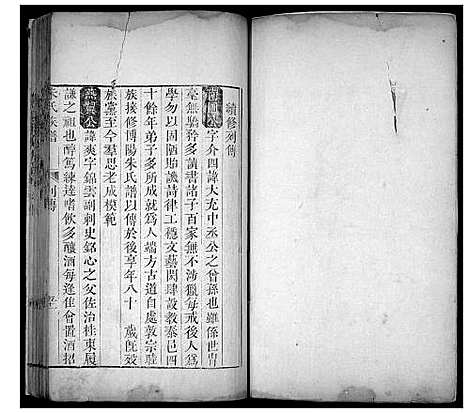 續修列傳
公字介四諱大充中丞公之曾孫也雖係世胄
毫無驕矜多讀書諸子百家無不涉獵每戒後人為
學勿以固陋貽譏詩律工穩文藝閎肆設教泰邑四
十餘年弟子多所成就為人端方古道自處敦宗睦
族接修博陽朱氏譜以傳於後享年八十 歲旣歿
族黨至今羣思老成模範
燕翼公諱爽字錦雲副刺史銘心之父佐治桂東履
謙之祖也醇篤練達嗜飲多釀酒每逢佳會置酒招
朱氏族譜 列傳